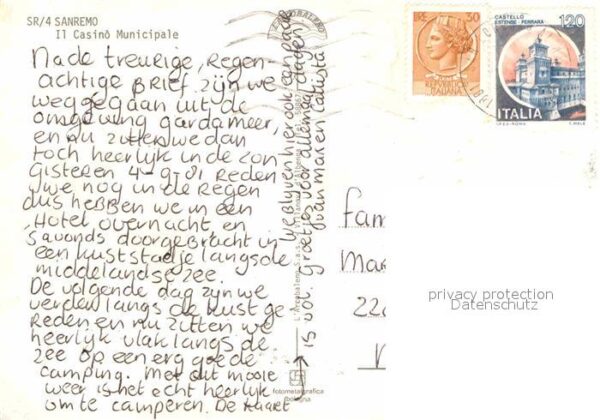 SR/4 SANREMO
Il Casinò Municipale
Na de treurige, Regen-
achtige BRIEF zijn we
weggegaan uit de
omgeving gardameer,
en nu zitten we dan
toch heerlijk in de zon
Gisteren 4-9-81 Reden
we nog in de Regen
dus hebben we in een
Hotel overnacht en
S'avonds doorgebracht in
een kuststadje langs de
middelandse zee.
De volgende dag zijn we
verder langs de kust ge
Reden en nu zitten we
heerlijk vlak langs de
zee op een erg goede
camping. Met dit mooie
weer is het echt heerlijk
om te camperen. De kaart
is voor
We blijven hier ook een paar
dagen
Groetjes voor allemaal
van max en
fotometalgrafica
Bologna
30
REPUBBLICA
ITALIANA
CASTELLO
ESTENSE - FERRARA
120
ITALIA
fam
Ma
22
privacy protection
Datenschutz